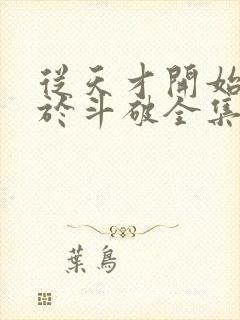 從天才開始
於斗破全集
葉鳥